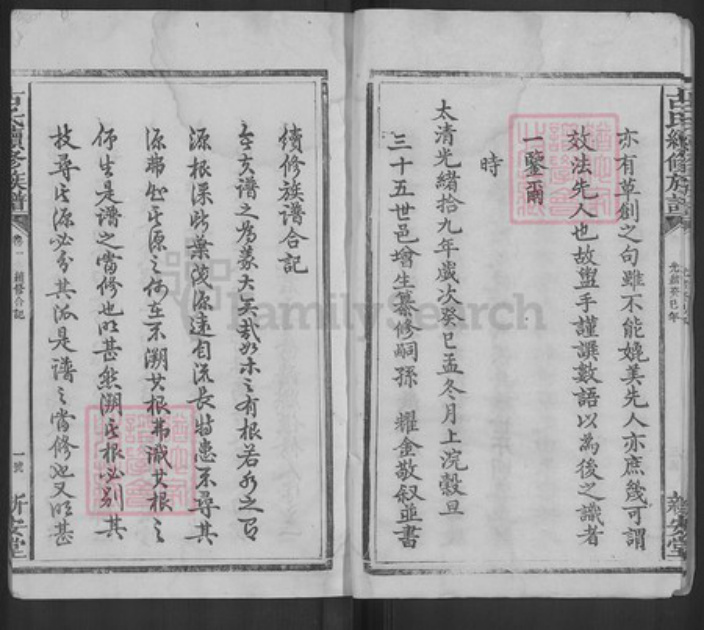 古氏續修族譜
光緒癸巳年
新安堂
亦有草創之句雖不能媲美先人亦庶幾可謂
效法先人也故盥手謹譔數語以為後之識者
一鑒爾
時
太清光緒拾九年歲次癸巳孟冬月上浣穀旦
三十五世邑增生纂修嗣孫 耀金敬叙並書
續修族譜合記
今夫譜之為義大矣哉如木之有根若水之有
源根深則葉茂源遠自流長特患不尋其
源弗知其源之何在不溯其根弗識其根之
何生是譜之當修也明甚然溯其根必別其
枝尋其源必分其派是譜之當修也又明甚
古氏續修族譜
卷一 補修合記
一號 新安堂
FamilySearch